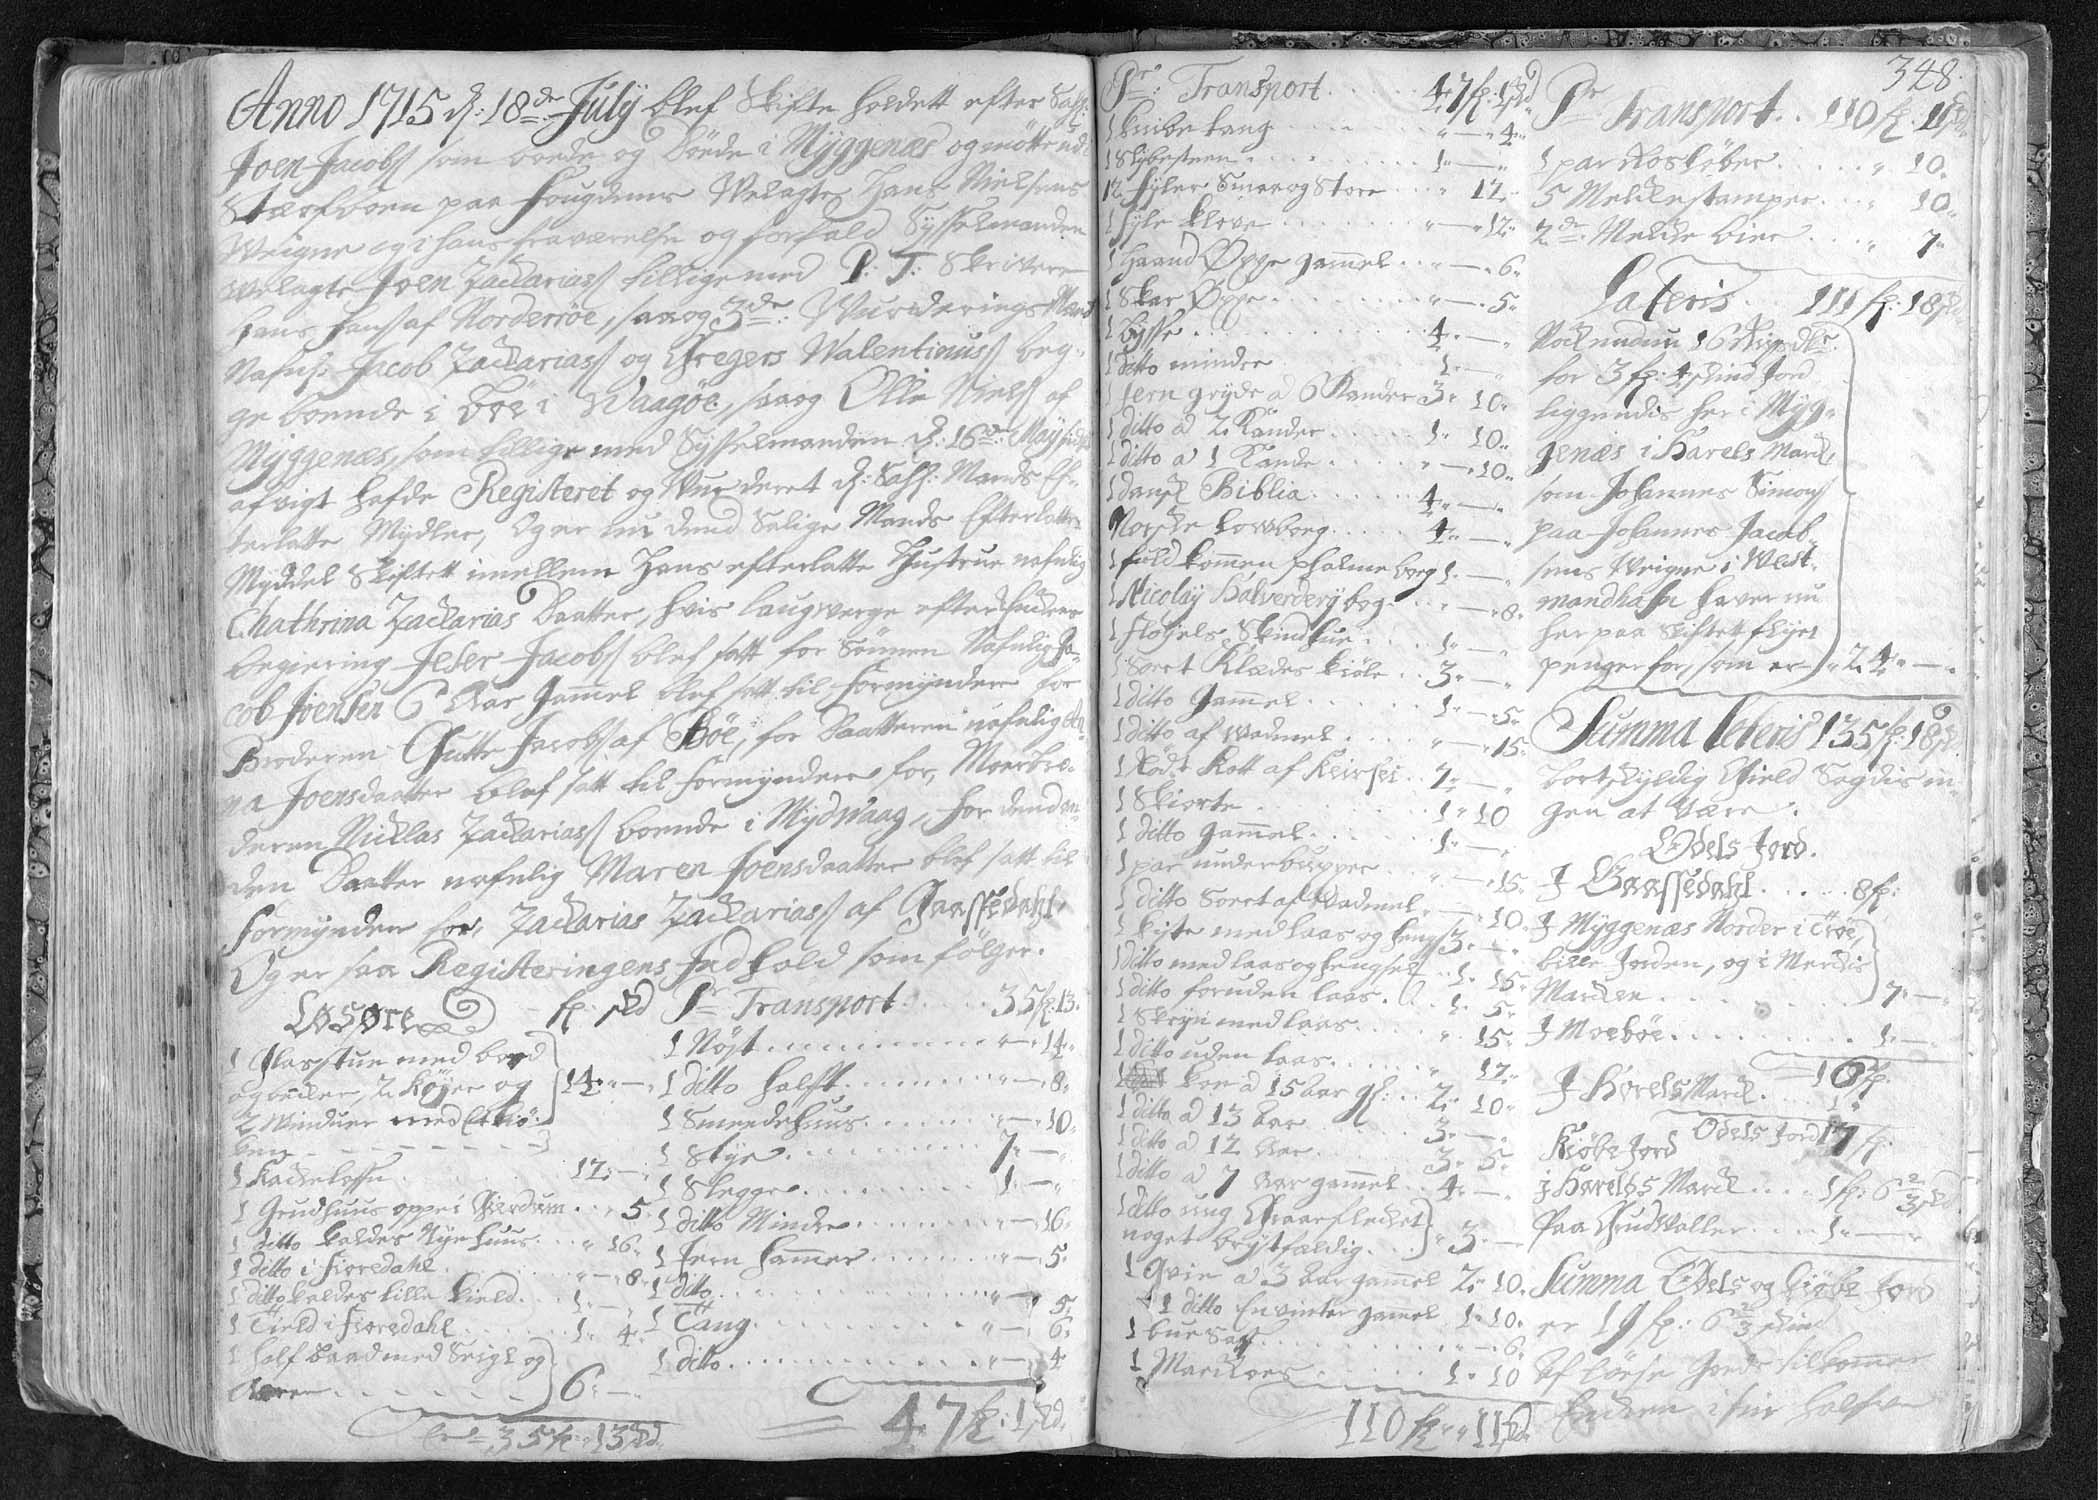 Anno 1715 d: 18de July blef Skifte holdett efter Sahl:
Joen Jacobs som boede og Døede i Myggenæs og mötte udi
Stærfboen paa Fougdens Welagte Hans Nielsens
Weigne og i hans fraværelse og forfald Sysselmanden
Welagte Joen Zackariass tillige med P: T: Skrivere
hans hans af Norderöe, saa og 3de: Wurderings Mænd
Nafnl: Jacob Zackariass og Gregers Walentinuss beg-
ge boende i Böe i Waagöe, saa og Olle Niels af
Myggenæs, som tillige med Sysselmanden d: 16de May
afvigt hafde Registeret og Wurderet d: Sahl: Mands Ef-
terlatte Mydler, Og er nu dend Salige Mands Efterlatte
Myddel Skiftett imellem Hans efterlatte Hustrue nafnlig
Chathrina Zackarias Daatter, hvis laugwerge efter hendes
begiering Jeser Jacobs blef satt for Sönnen Nafnlig Ja-
cob Joensen 6 Aar Gammel blef satt til formynder for
Broderen Gutte Jacobs af Böe, for Daatteren nafnlig An-
na Joensdaatter blef satt til formyndere for, Moerbro-
deren Nicklas Zackariass boende i Mydvaag, for dend an-
den Daatter nafnlig Maren Joensdaatter blef satt til
formynder for, Zackarias Zackariass af Gaassedahl,
Og er saa Registeringens Indhold som fölger.
Løsøre fl: skd
1 Glasstue med bord
og bencker, 2 Köyer og
2 Winduer med
14 " —
1 Rackelofn 12 " —
1 Grudhuus oppe i Gierdum " 5
1 ditto kaldes Nye huus " 16
1 ditto i Fioredahl " — " 8
1 ditto kaldes lille kield 1 " —
1 Tield i Fioredahl 1 " 4
1 half Baad med Seigl og
Aarer 6 " —
35 fl: 13 skd
Pr Transport 35 fl: 13
1 Nöyt " — " 14
1 ditto halft " — " 8
1 Smeedehuus " — " 10
1 Stye 7 " —
1 Slegge 1 " —
1 ditto Mindre " — 16
1 Jern hammer " — 5
1 ditto " — 5
1 Tang " — 6
1 ditto " — 4
47 fl: 1 skd
Pr: Transport 47 fl: 1 skd
1 knibe tang " — " 4
1 Slybesteen 1 " —
12 fyler Smaa og Store " 12
1 fyle klove " — " 12
1 haand Öxe gammel " — " 6
1 Skar Öxe " — " 5
1 bysse 4 " —
1 ditto mindre 1 " —
1 Jern gryde a 6 Kander 3 " 10
1 ditto a 2 Kander 1 " 10
1 ditto a 1 Kande " — " 10
1 dansk Biblia 4 " —
Norske lowbog 4 " —
1 fuldkommen psalmebog 1 " —
1 Nicolay bog " — " 8
1 fløyels Skind hue 1 " —
1 Soret Klædes kiole 3 " —
1 ditto Gammel 1 " — 5
1 ditto af Wadmel " — " 15
1 Rödt Kott af Keirsei 7 " —
1 Skiorte 1 " 10
1 ditto gammel 1 " —
1 par underbuxer " — " 15
1 ditto Soret af Vadmel " — " 10
1 kiste med laas og heng 3 " —
1 ditto med laas og hengsel 1 " 15
1 ditto foruden laas 1 " 5
1 Skryn med laas " 15
1 ditto uden laas " 12
1 koe a 15 aar gl: 2 " 10
1 ditto a 13 aar 3 " —
1 ditto a 12 Aar 3 " 5
1 ditto a 7 Aar gammel 4 " —
1 ditto ung Graaflecket
noget brystfældig 3 " —
1 Qvie a 3 aar gammel 2 " 10
1 ditto En vinter gamel 1 " 10
1 " — " 6
1 1 " 10
110 fl: " 11 skd
348.
Pr Transport 110 fl: 11 skd
1 par " 10
5 Melckestamper " 10
2de Melcke bier " 7
Lateris 111 fl: 18 skd
Nock endnu 16 Rixdlr
for 3 fl: 4 skind Jord
liggendis her i Myg-
genæs i Harels Marck,
som Johannes Simons
paa Johannes Jacob-
sens Weigne i West-
mandhafn haver nu
her paa Skiftett flyet
penger for, som er " 24 " —
Summa leteris 135 fl: 18 skd
bortskyldig Gield Sagdis in-
gen at være.
Odels Jord.
J Gaassedahl 8 fl:
J Myggenæs Norder i
bitte Jorden, og i Merckis
Marcken 7 " —
J Moeböe 1 " —
16 fl:
J Horels Marck 1 "
Odels Jord 17 fl:
Kiöbe Jord
J Horels Marck 1 fl: 6 2/3 skd
Paa Grudvaller 1 " —
Summa Odels og Kiöbe Jord
er 19 fl: 6 2/3 skind
Af lörse Jorde tilkommer
Enken i sin halfve